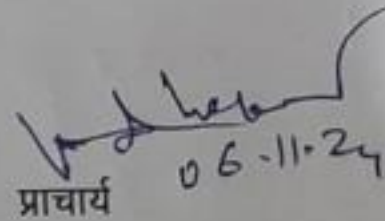 06-11-24
प्राचार्य